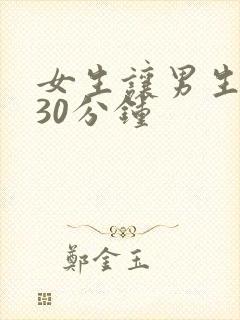 女生讓男生
30分鍾
鄭金玉